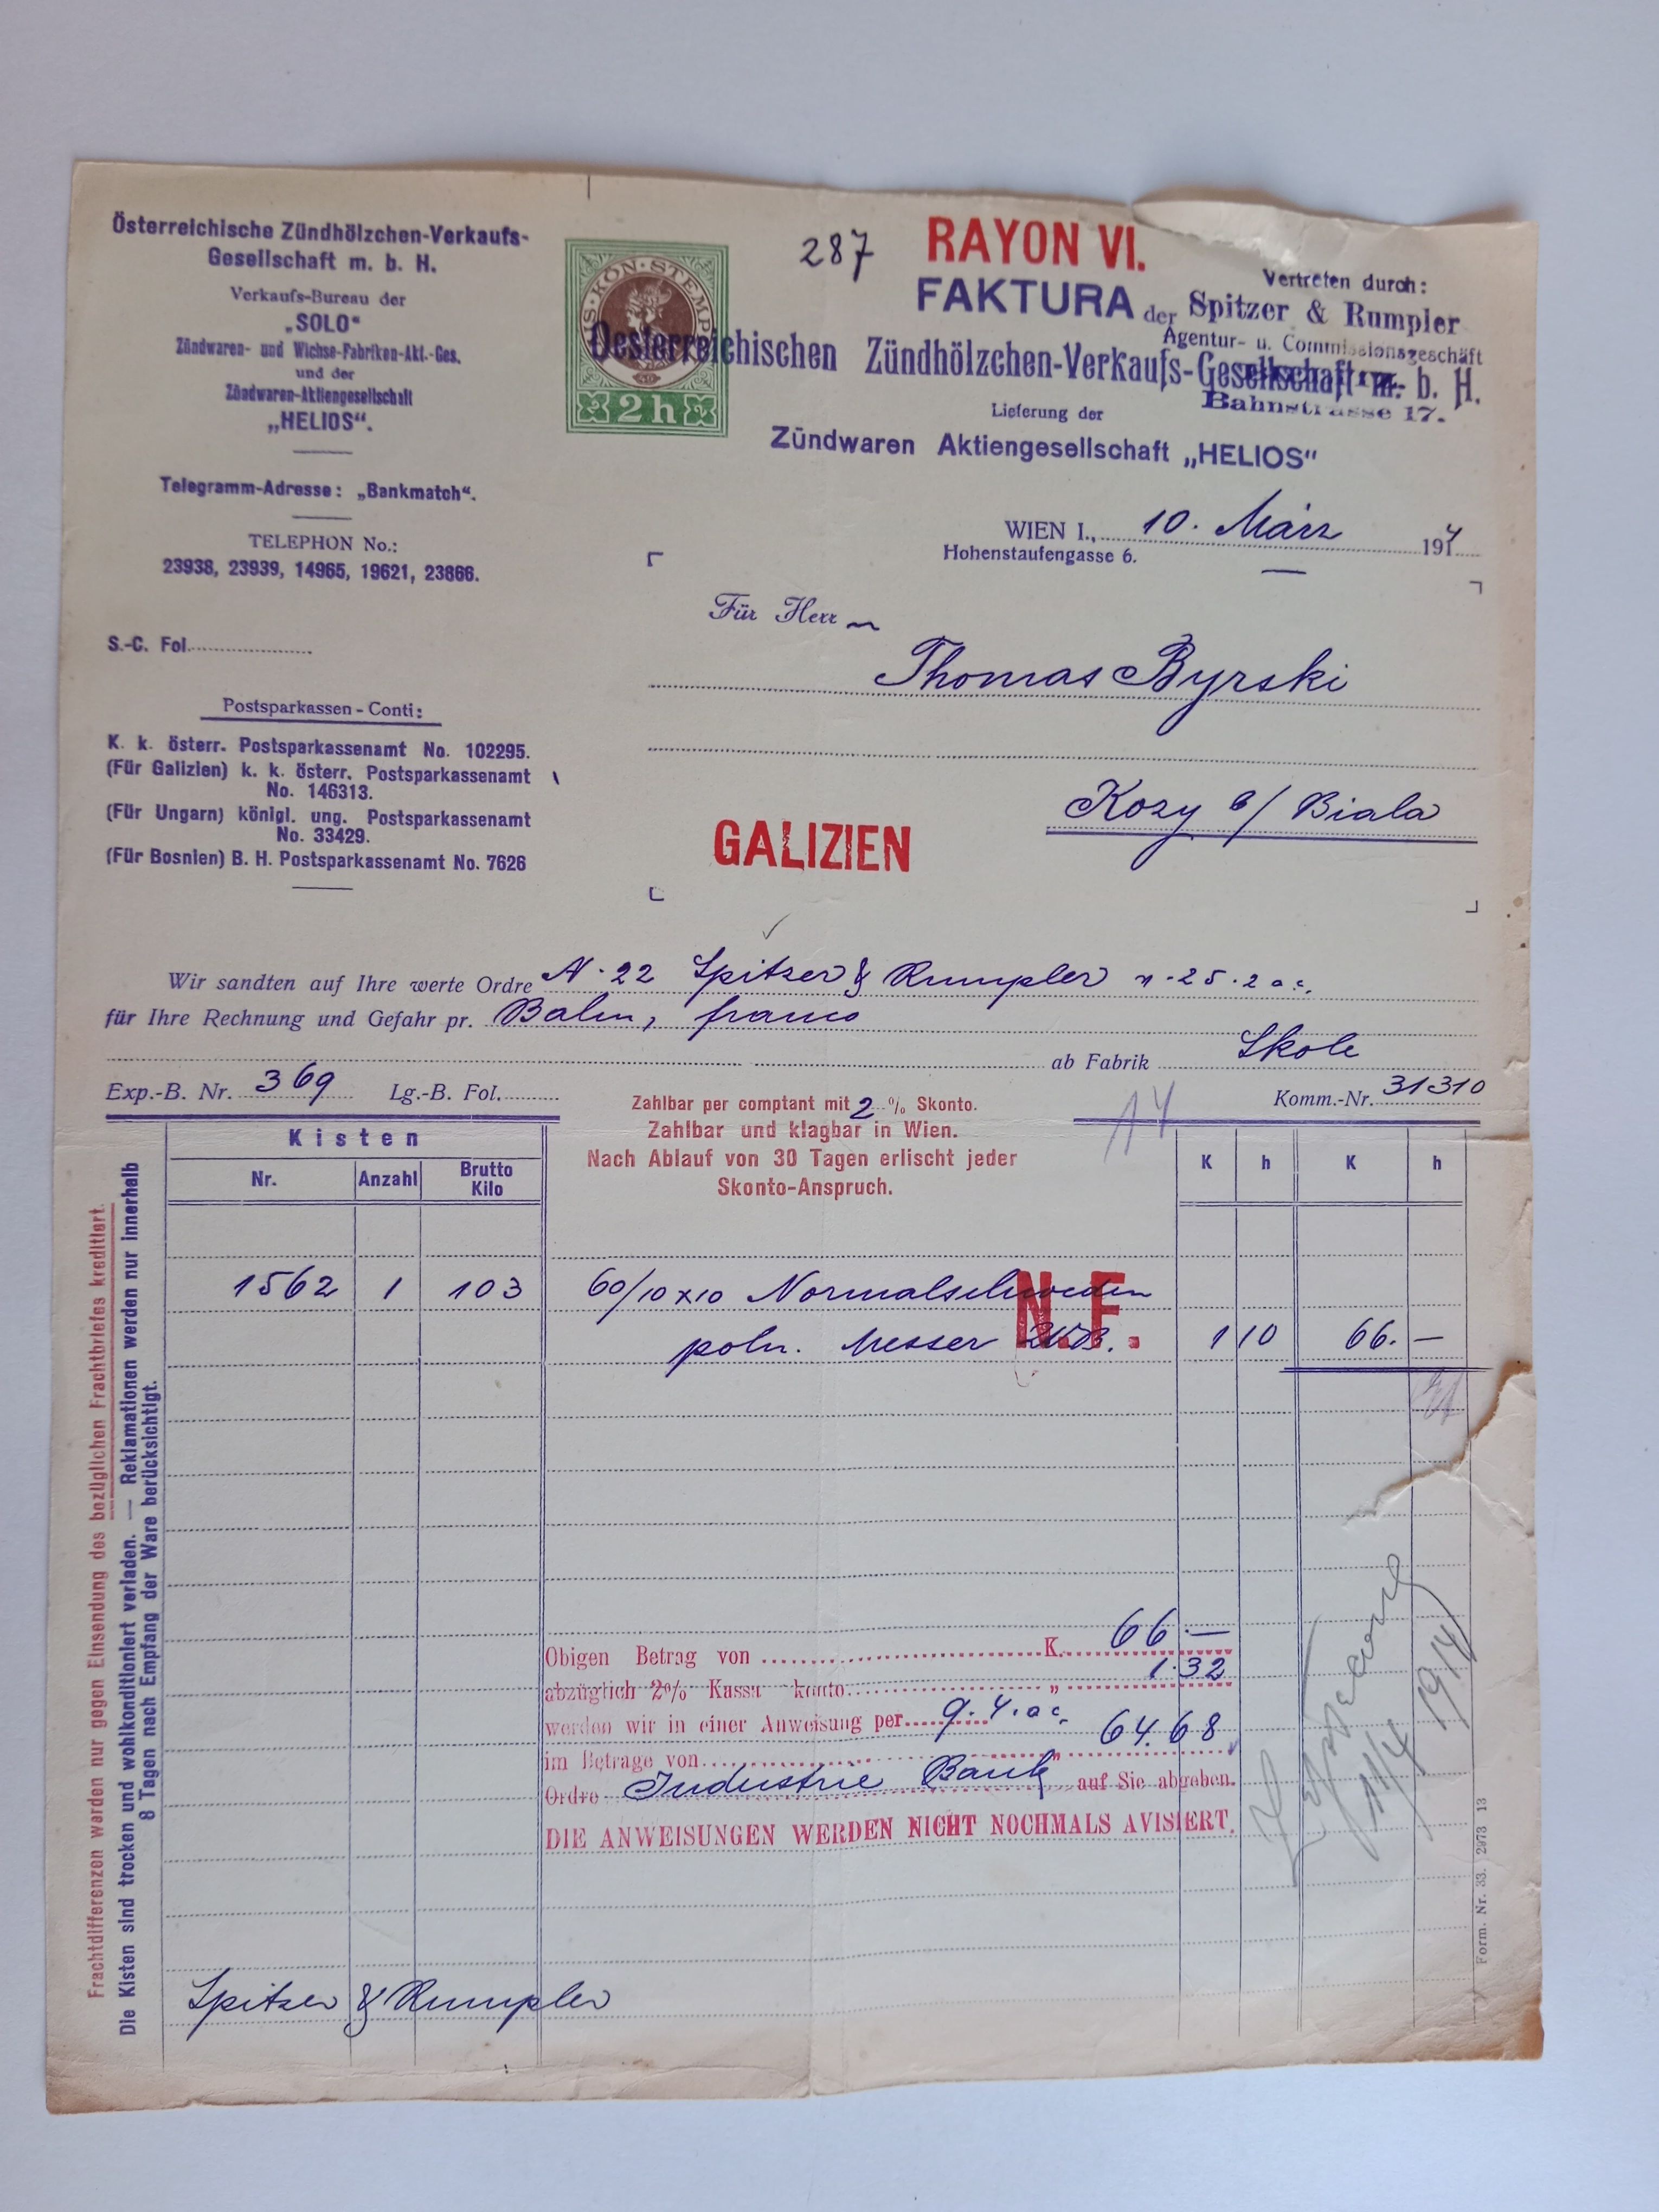 Österreichische Zündhölzchen-Verkaufs-
Gesellschaft m. b. H.
Verkaufs-Bureau der
„SOLO“
Zündwaren- und Wichse-Fabriken-Akt.-Ges.
und der
Zündwaren-Aktiengesellschaft
„HELIOS“.
Telegramm-Adresse: „Bankmatch“.
TELEPHON No.:
23938, 23939, 14965, 19621, 23866.
S.-C. Fol.
Postsparkassen-Conti:
K. k. österr. Postsparkassenamt No. 102295.
(Für Galizien) k. k. österr. Postsparkassenamt
No. 146313.
(Für Ungarn) königl. ung. Postsparkassenamt
No. 33429.
(Für Bosnien) B. H. Postsparkassenamt No. 7626
KÖN·STEMP
2h
287
RAYON VI.
Vertreten durch:
Spitzer & Rumpler
Agentur- u. Commissionsgeschäft
Bahnstrasse 17.
FAKTURA der
Oesterreichischen Zündhölzchen-Verkaufs-Gesellschaft m. b. H.
Lieferung der
Zündwaren Aktiengesellschaft „HELIOS“
WIEN I., 10. März 1914
Hohenstaufengasse 6.
Für Herrn
Thomas Byrski
Kozy b/ Biala
GALIZIEN
Wir sandten auf Ihre werte Ordre N. 22 Spitzer & Rumpler v. 25. 2 a c.
für Ihre Rechnung und Gefahr pr. Bahn, franco
ab Fabrik Skole
Exp.-B. Nr. 369 Lg.-B. Fol. Komm.-Nr. 31310
Zahlbar per comptant mit 2 % Skonto.
Zahlbar und klagbar in Wien.
Nach Ablauf von 30 Tagen erlischt jeder
Skonto-Anspruch.
14
Kisten
Nr. Anzahl Brutto Kilo K h K h
1562 1 103 60/10 x 10 Normalschweden
poln. Messer 1 10 66. —
N.F.
Obigen Betrag von K. 66.—
abzüglich 2% Kassa konto „ 1.32
werden wir in einer Anweisung per 9. 4. a c.
im Betrage von „ 64.68
Ordre Industrie Bank auf Sie abgeben.
DIE ANWEISUNGEN WERDEN NICHT NOCHMALS AVISIERT.
11/4 1914
Spitzer & Rumpler
Frachtdifferenzen werden nur gegen Einsendung des bezüglichen Frachtbriefes kreditiert.
Die Kisten sind trocken und wohlkonditioniert verladen. — Reklamationen werden nur innerhalb
8 Tagen nach Empfang der Ware berücksichtigt.
Form. Nr. 33. 2973 13